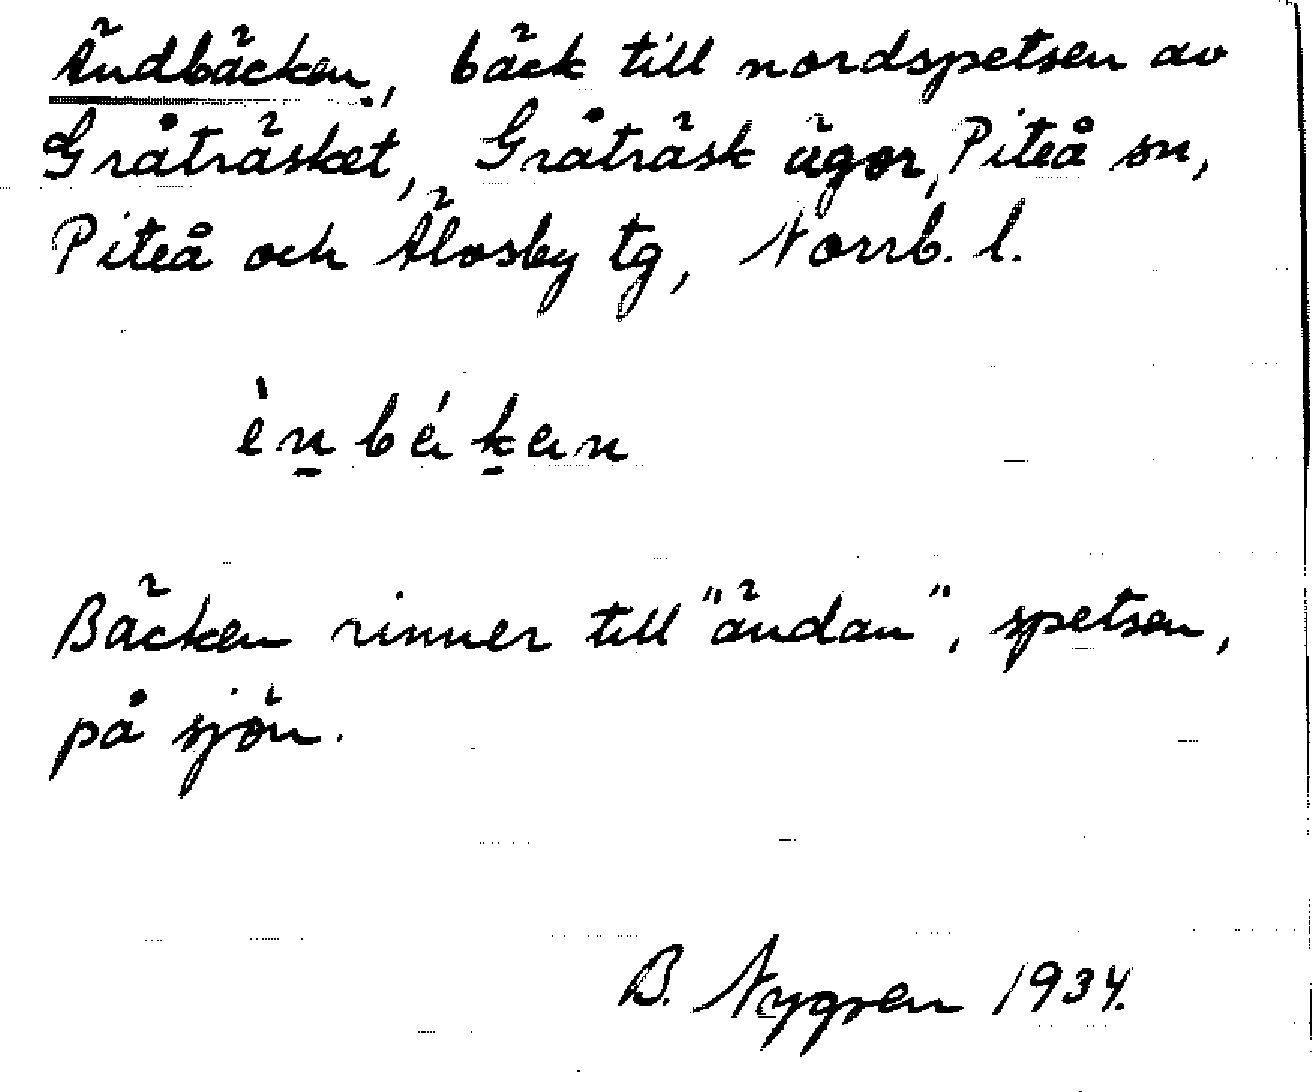 Ändbäcken, bäck till nordspetsen av
Gråträsket, Gråträsk ägor, Piteå sn,
Piteå och Älvsby tg, Norrb. l.
èn̲béḵen
Bäcken rinner till "ändan", spetsen,
på sjön.
B. Nygren 1934.